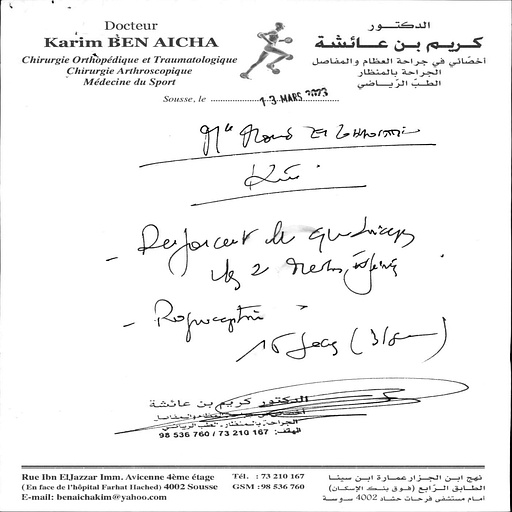 Docteur
Karim BEN AICHA
Chirurgie Orthopédique et Traumatologique
Chirurgie Arthroscopique
Médecine du Sport
الدكتور
كريم بن عائشة
أخصائي في جراحة العظام والمفاصل
الجراحة بالمنظار
الطب الرياضي
Sousse, le 13 MARS 2023
Kiné
- Renforcement du quadriceps
des 2 membres
- Proprioception
15 séances (3/sem)
الدكتور كريم بن عائشة
أخصائي في جراحة العظام والمفاصل
الجراحة بالمنظار - الطب الرياضي
الهاتف: 98 536 760 / 73 210 167
Rue Ibn ElJazzar Imm. Avicenne 4ème étage
(En face de l'hôpital Farhat Hached) 4002 Sousse
E-mail: benaichakim@yahoo.com
Tél. : 73 210 167
GSM : 98 536 760
نهج ابن الجزار عمارة ابن سينا
الطابق الرابع (فوق بنك الإسكان)
أمام مستشفى فرحات حشاد 4002 سوسة